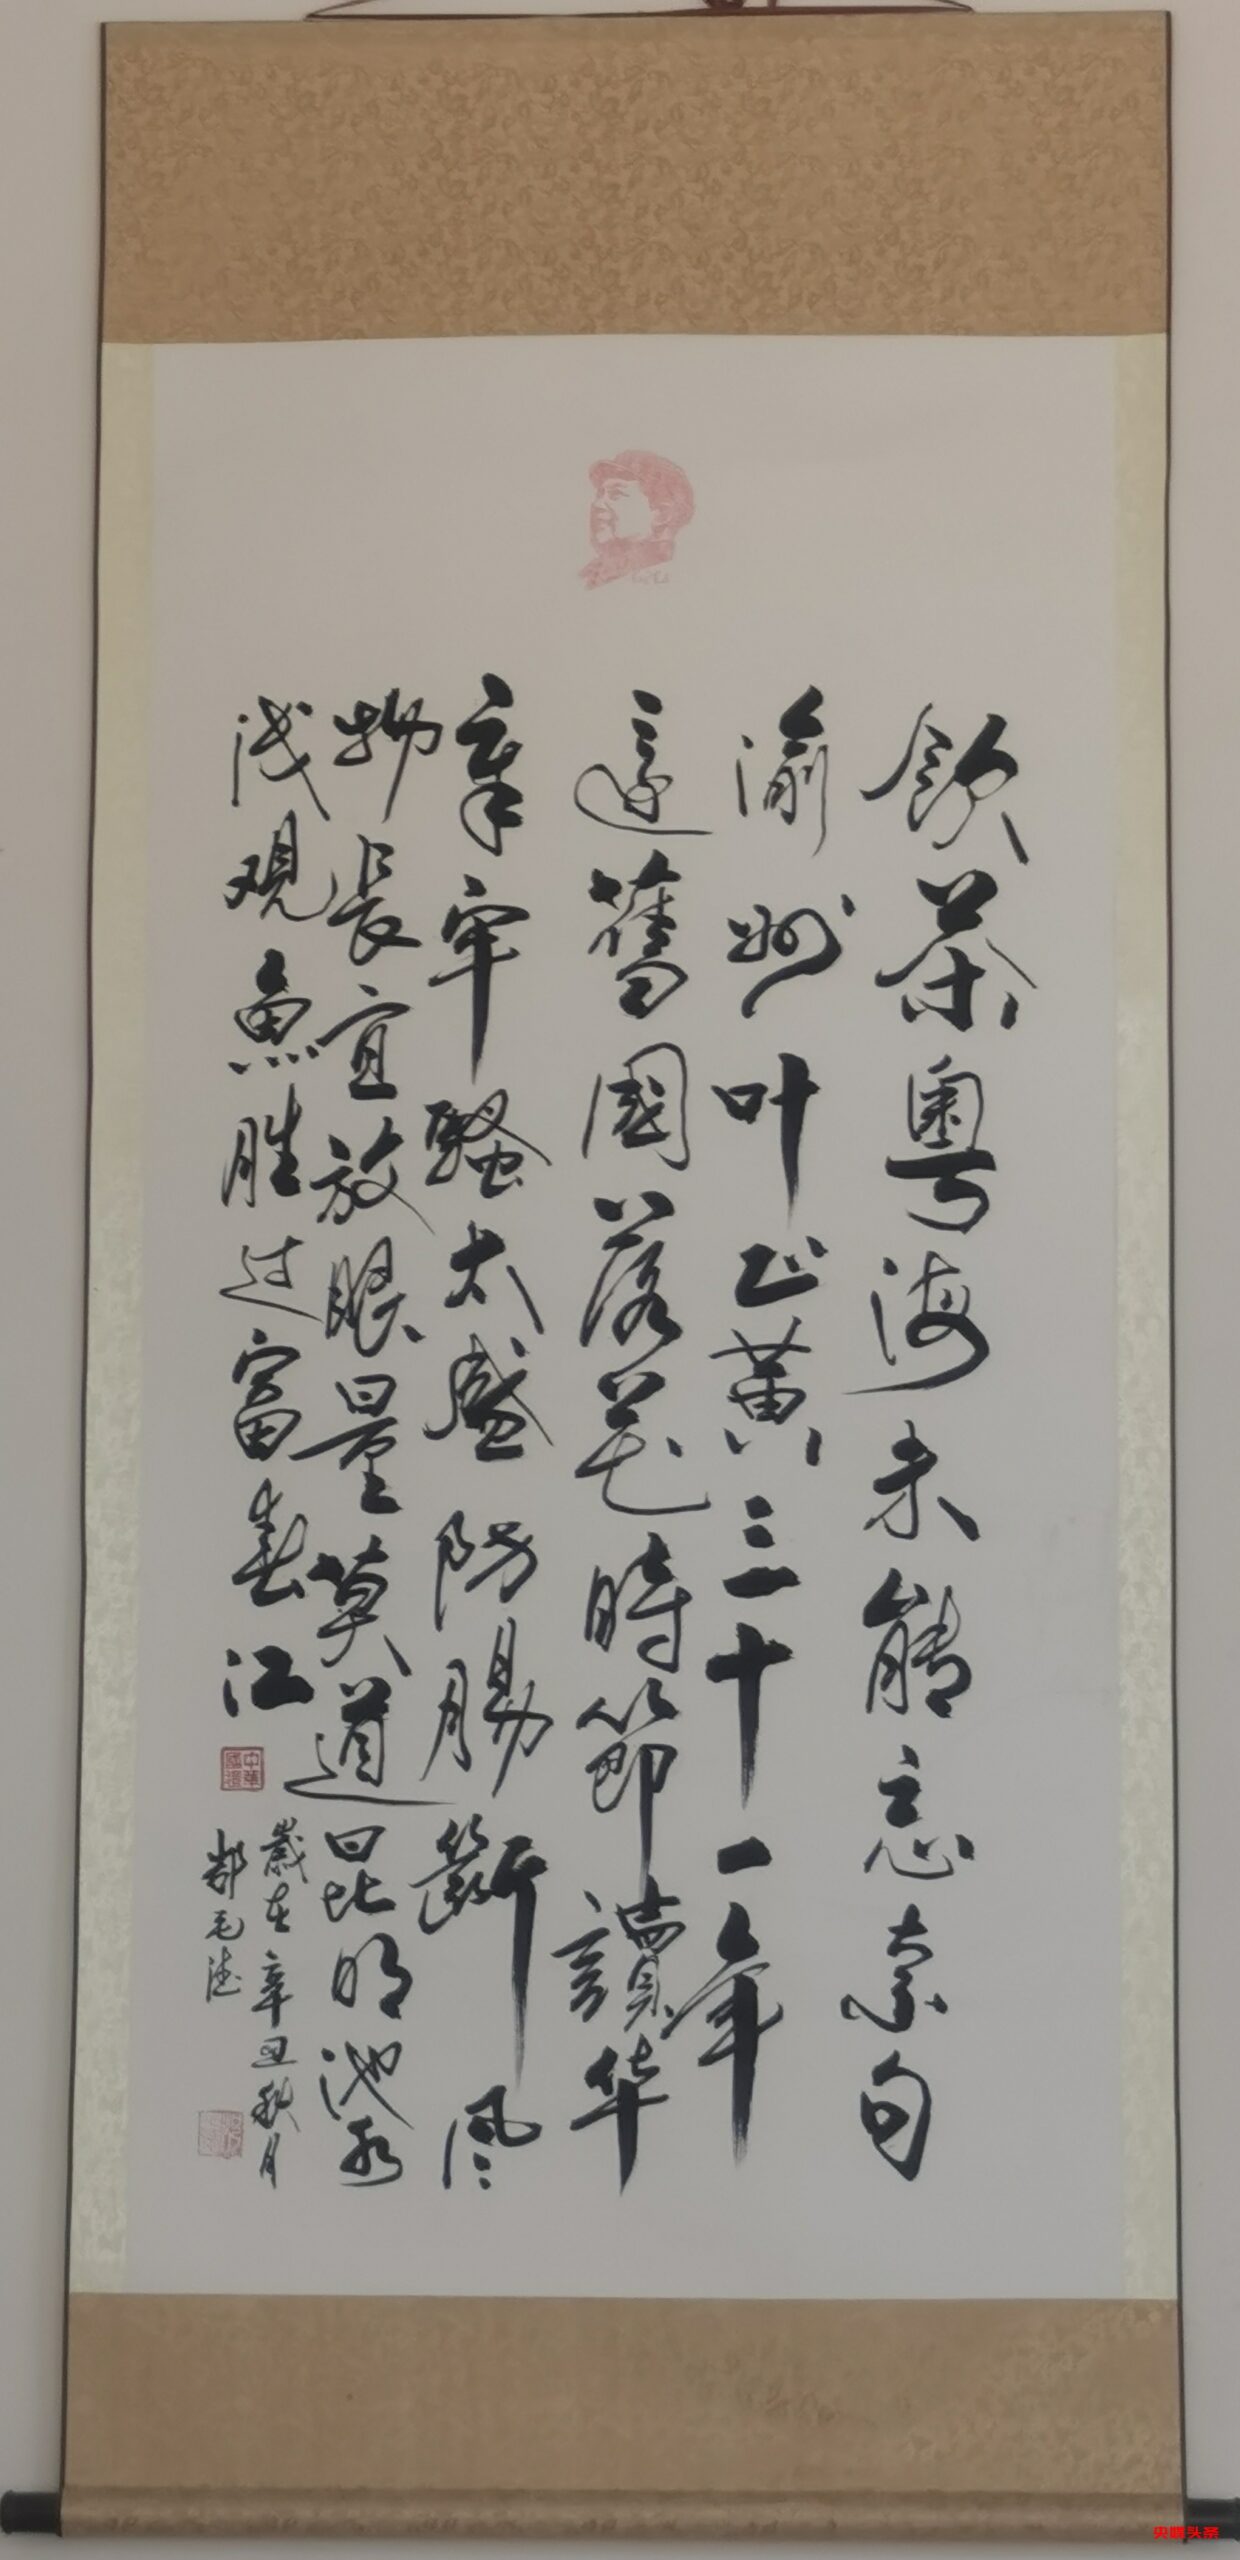 飲茶粤海未能忘索句
渝州叶正黄三十一年
還舊國落花時節讀华
章牢騷太盛防腸斷風
物長宜放眼量莫道昆明池水
浅观魚胜过富春江
歲在辛丑秋月
毛德
头条